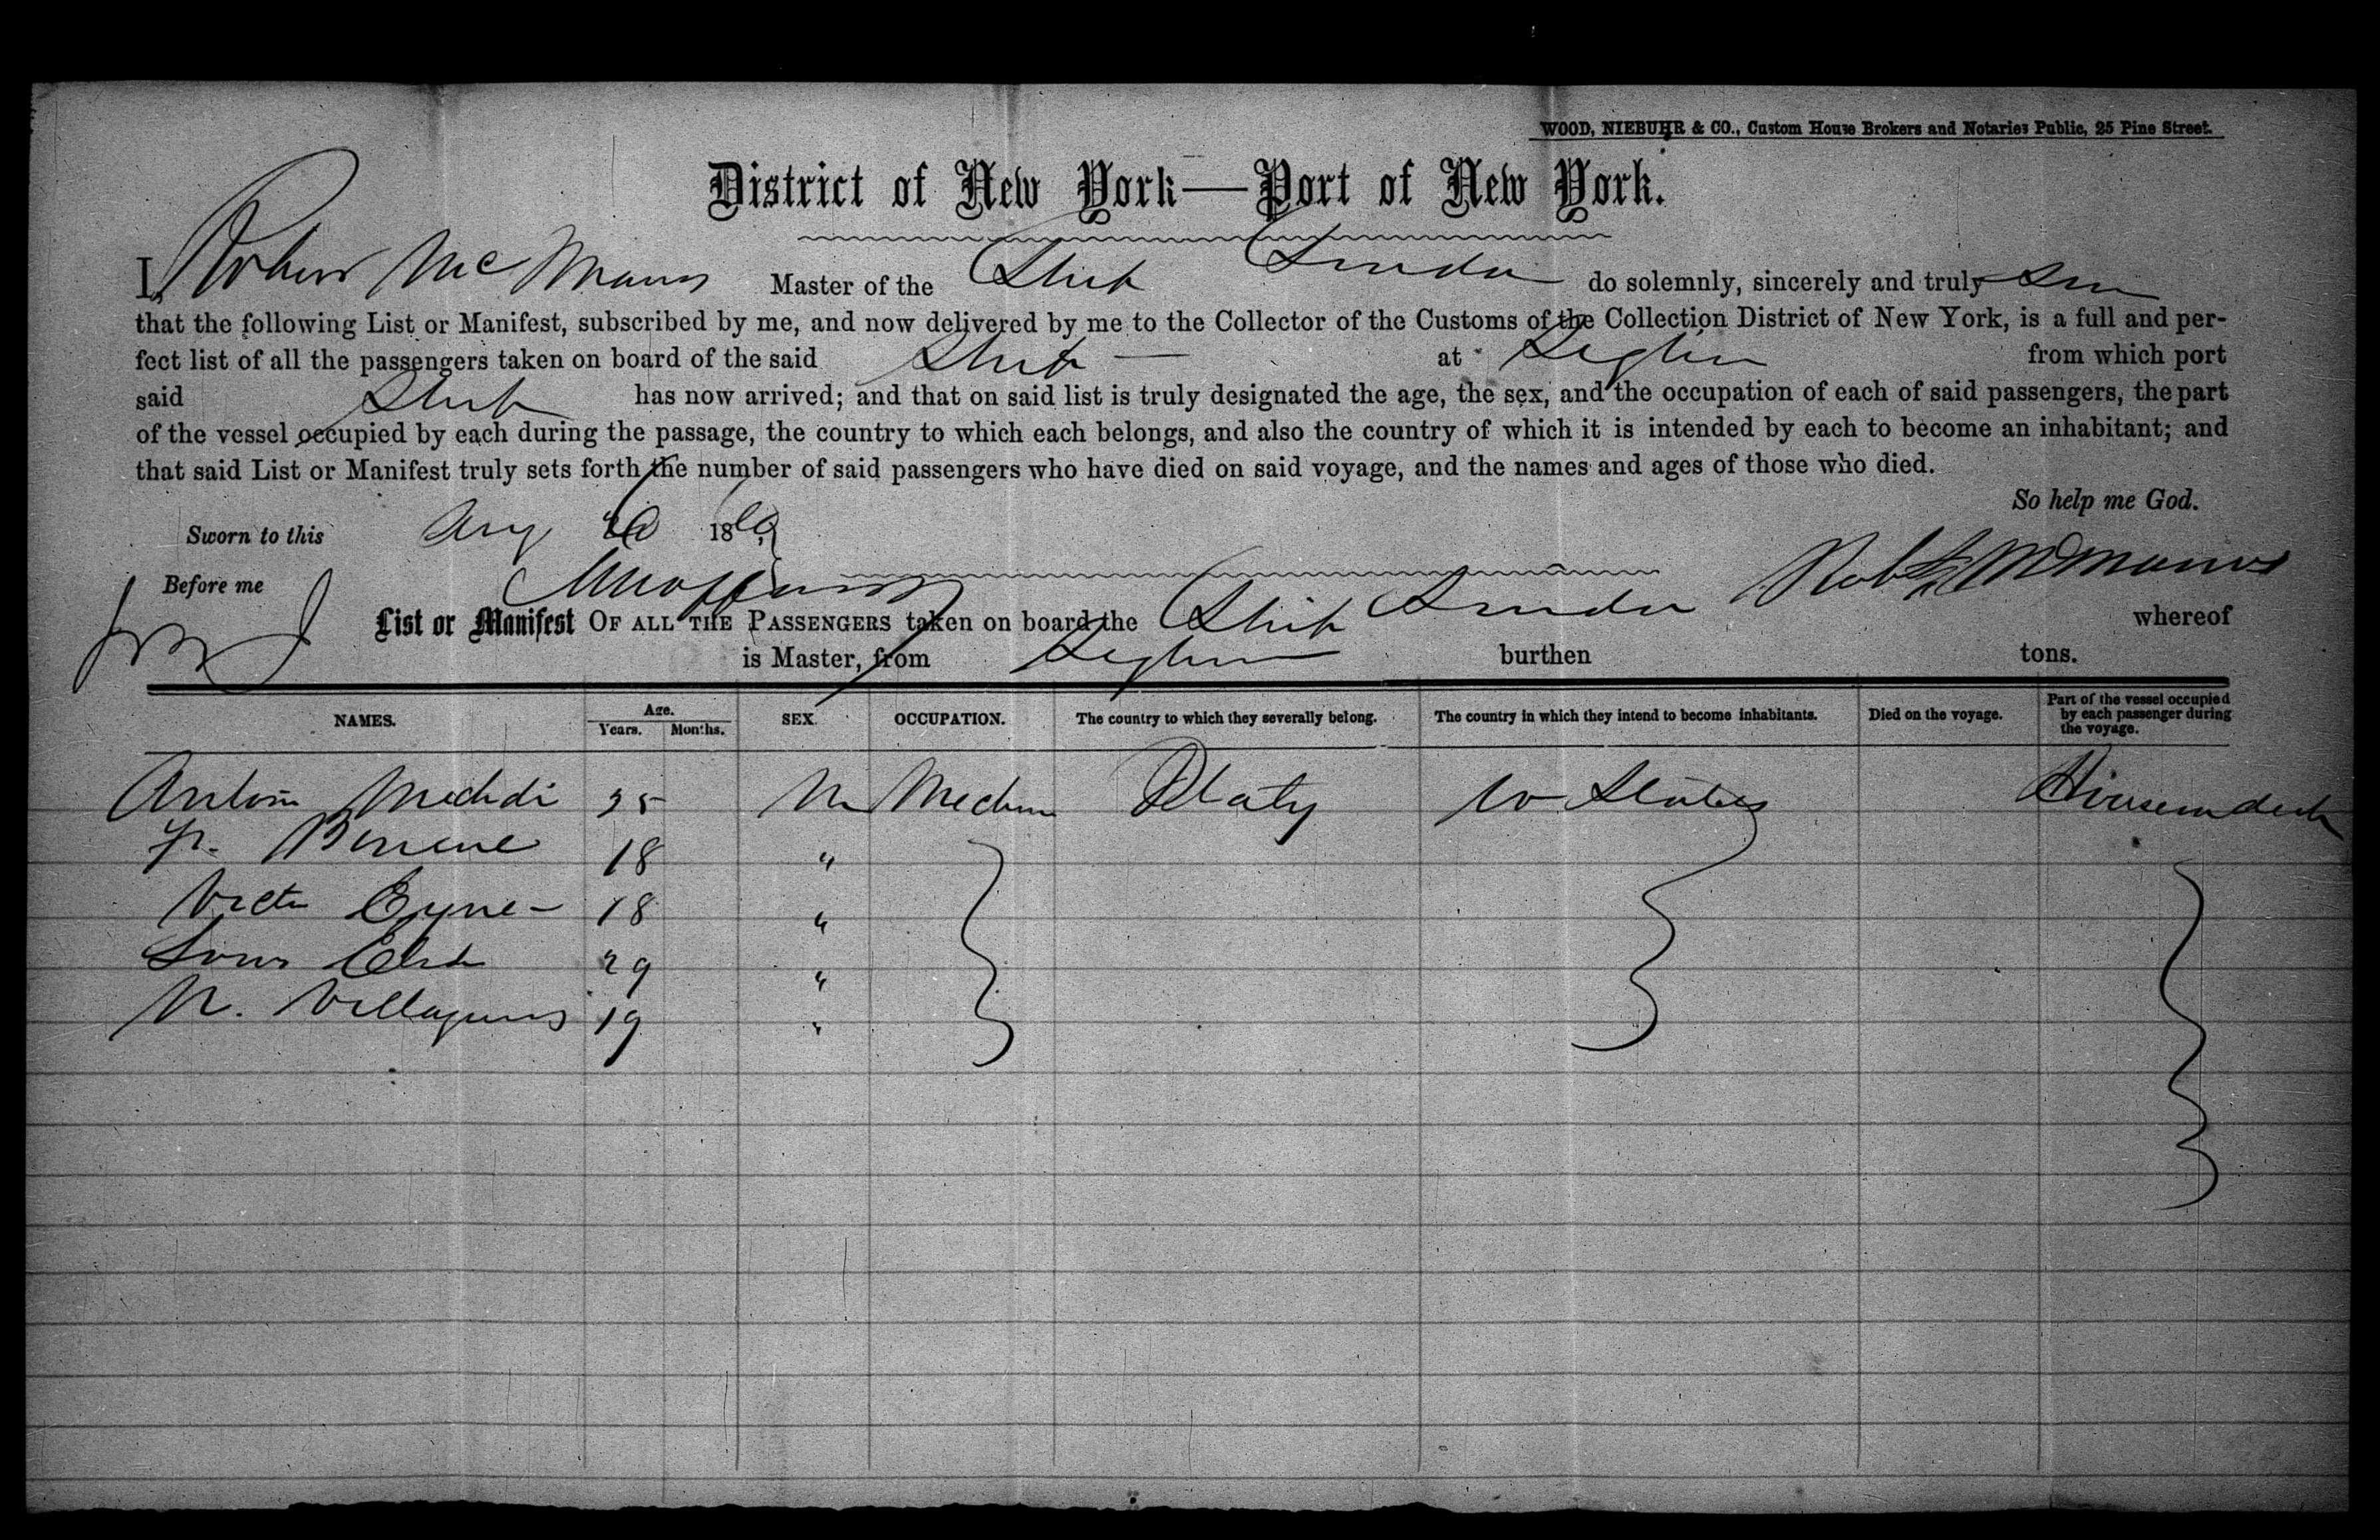 WOOD, NIEBUHR & CO., Custom House Brokers and Notaries Public, 25 Pine Street.
District of New York—Port of New York.
I, Robert McManus Master of the Ship do solemnly, sincerely and truly
that the following List or Manifest, subscribed by me, and now delivered by me to the Collector of the Customs of the Collection District of New York, is a full and per-
fect list of all the passengers taken on board of the said Ship — at Leghorn from which port
said Ship has now arrived; and that on said list is truly designated the age, the sex, and the occupation of each of said passengers, the part
of the vessel occupied by each during the passage, the country to which each belongs, and also the country of which it is intended by each to become an inhabitant; and
that said List or Manifest truly sets forth the number of said passengers who have died on said voyage, and the names and ages of those who died.
So help me God.
Sworn to this Aug 1869
Before me Robt McManus
List or Manifest OF ALL THE PASSENGERS taken on board the Ship whereof
is Master, from Leghorn burthen tons.
NAMES. Age. Years. Months. SEX. OCCUPATION. The country to which they severally belong. The country in which they intend to become inhabitants. Died on the voyage. Part of the vessel occupied by each passenger during the voyage.
Antoni 25 M Mechan Italy U States House on deck
18 "
Victor 18 "
Louis 29 "
N. 19 "